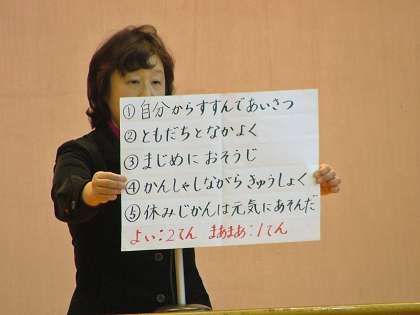 ①自分からすすんであいさつ
②ともだちとなかよく
③まじめに おそうじ
④かんしゃしながら きゅうしょく
⑤休みじかんは元気にあそんだ
よい:2てん まあまあ:1てん